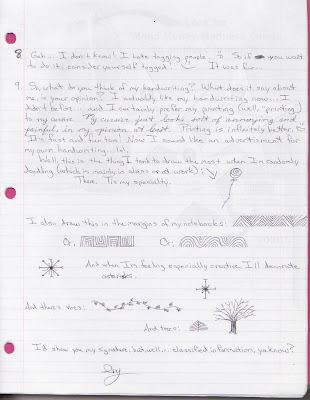 8. Gah... I don't know! I hate tagging people. So if you want
to do it, consider yourself tagged! It was fun...
9. So, what do you think of my handwriting? What does it say about
me, in your opinion? I actually like my handwriting now... I
didn't before... and I certainly prefer my printing (well, "printing")
to my cursive. My cursive just looks sort of annoying and
painful, in my opinion, at least. Printing is infinitely better.
It's fast and fun too. Now I sound like an advertisement for
my own handwriting... lol.
Well, this is the thing I tend to draw the most when I'm randomly
doodling (which is mainly in class or at work):
There. 'Tis my speciality.
I also draw this in the margins of my notebooks:
Or, Or:
And when I'm feeling especially creative I'll decorate
asterisks.
And there's vines:
And trees:
I'd show you my signature, but well... classified information, ya know?